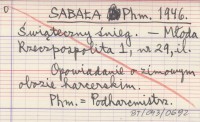 0
SABAŁA Phm. 1946.
Świąteczny śnieg. — Młoda
Rzeszpospolita 1, nr 29, il.
Opowiadanie o zimowym
obozie harcerskim.
Phm. = Podharcmistrz.
BT/093/0692